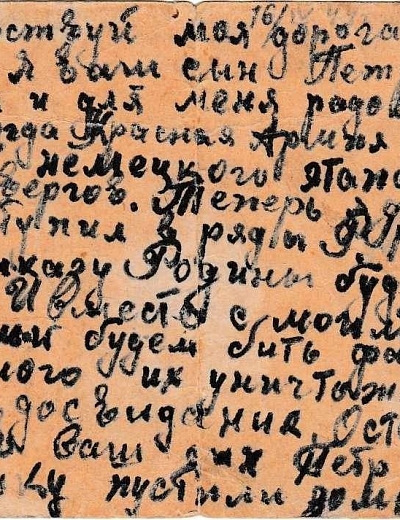 ствуй моя дорога
я Ваш сын Пет
и для меня радос
гда Красная Армия
немецкого
вергов. Теперь я
тупил в ряды
иказу Родины буд
И вместе с моим
ми будем бить фа
ного их уничтож
до свидания. Оста
Ваш сын Петр
ку пустили дом